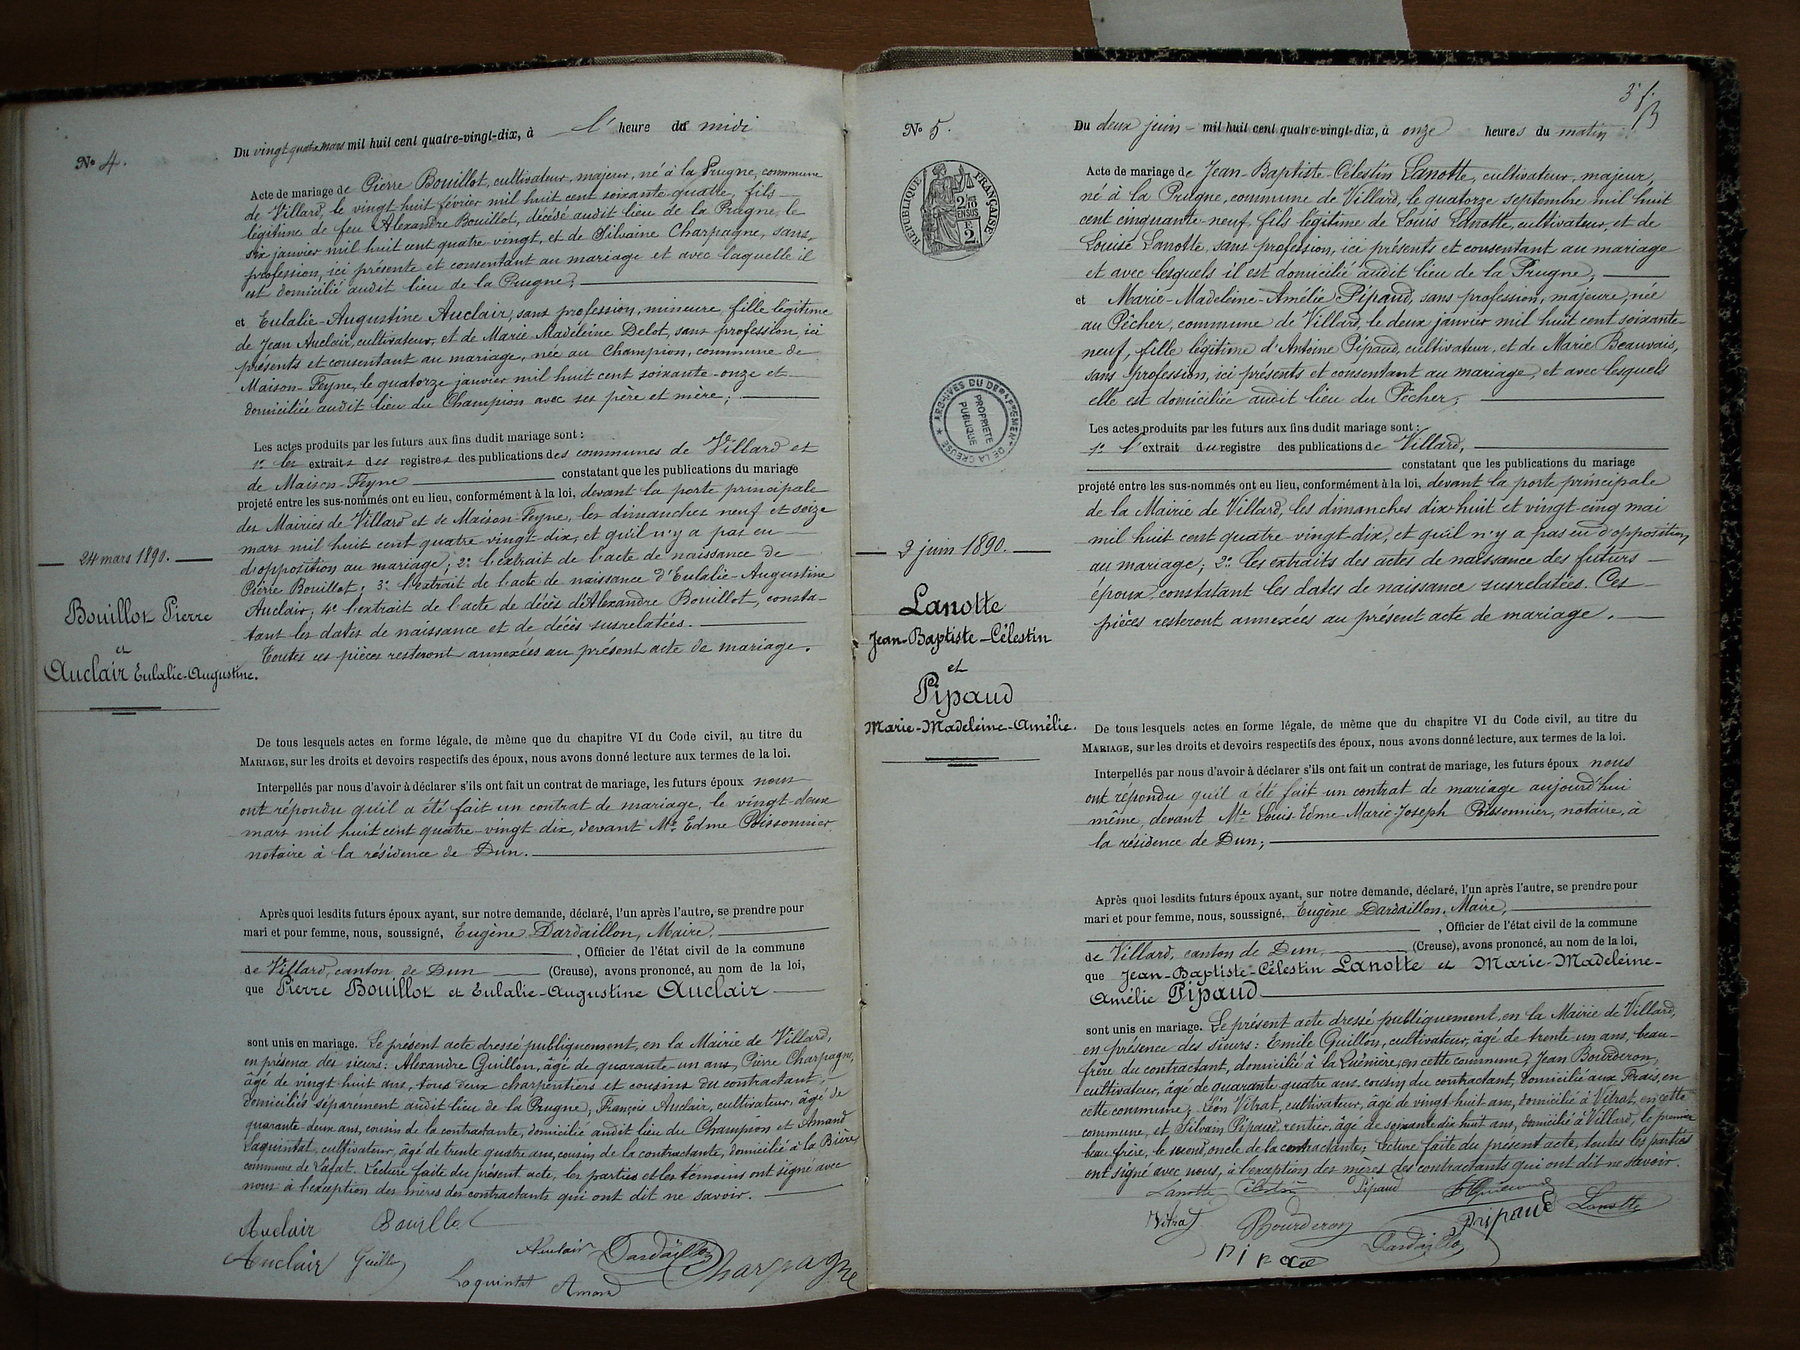 Nº 4.
Du vingt quatre mars mil huit cent quatre-vingt-dix, à l' heure de midi
Acte de mariage de Pierre Bouillot, cultivateur, majeur, né à la Prugne, commune
de Villard, le vingt huit février mil huit cent soixante-quatre, fils
légitime de feu Alexandre Bouillot, décédé audit lieu de la Prugne, le
six janvier mil huit cent quatre vingt, et de Silvaine Charpagne, sans
profession, ici présente et consentant au mariage et avec laquelle il
est domicilié audit lieu de la Prugne;
et Eulalie-Augustine Auclair, sans profession, mineure, fille légitime
de Jean Auclair, cultivateur, et de Marie Madeleine Delot, sans profession, ici
présents et consentant au mariage, née au Champion, commune de
Maison-Feyne, le quatorze janvier mil huit cent soixante-onze et
domiciliée audit lieu du Champion avec ses père et mère;
Les actes produits par les futurs aux fins dudit mariage sont :
1º les extraits des registres des publications des communes de Villard et
de Maison-Feyne constatant que les publications du mariage
projeté entre les sus-nommés ont eu lieu, conformément à la loi, devant la porte principale
des Mairies de Villard et de Maison-Feyne, les dimanches neuf et seize
mars mil huit cent quatre vingt-dix, et qu'il n'y a pas eu
d'opposition au mariage; 2º l'extrait de l'acte de naissance de
Pierre Bouillot; 3º l'extrait de l'acte de naissance d'Eulalie-Augustine
Auclair; 4º l'extrait de l'acte de décès d'Alexandre Bouillot, consta-
tant les dates de naissance et de décès susrelatées.
Toutes ces pièces resteront annexées au présent acte de mariage.
24 mars 1890.
Bouillot Pierre
et
Auclair Eulalie-Augustine.
De tous lesquels actes en forme légale, de même que du chapitre VI du Code civil, au titre du
MARIAGE, sur les droits et devoirs respectifs des époux, nous avons donné lecture aux termes de la loi.
Interpellés par nous d'avoir à déclarer s'ils ont fait un contrat de mariage, les futurs époux nous
ont répondu qu'il a été fait un contrat de mariage, le vingt-deux
mars mil huit cent quatre-vingt dix, devant Me Edme Poissonnier
notaire à la résidence de Dun.
Après quoi lesdits futurs époux ayant, sur notre demande, déclaré, l'un après l'autre, se prendre pour
mari et pour femme, nous, soussigné, Eugène Dardaillon, Maire,
, Officier de l'état civil de la commune
de Villard, canton de Dun (Creuse), avons prononcé, au nom de la loi,
que Pierre Bouillot et Eulalie-Augustine Auclair
sont unis en mariage. Le présent acte dressé publiquement, en la Mairie de Villard,
en présence des sieurs: Alexandre Guillon, âgé de quarante-un ans, Pierre Charpagne,
âgé de vingt huit ans, tous deux charpentiers et cousins du contractant,
domiciliés séparément audit lieu de la Prugne, François Auclair, cultivateur, âgé de
quarante deux ans, cousin de la contractante, domicilié audit lieu du Champion et Amand
Laquintat, cultivateur, âgé de trente quatre ans, cousin de la contractante, domicilié à la Bière,
commune de Lafat. Lecture faite du présent acte, les parties et les témoins ont signé avec
nous à l'exception des mères des contractants qui ont dit ne savoir.
Auclair Bouillot
Auclair Guillon Auclair Dardaillon Charpagne
Laquintat Amand
3
Nº 5.
Du deux juin mil huit cent quatre-vingt-dix, à onze heures du matin
RÉPUBLIQUE FRANÇAISE
2/10 EN SUS
ARCHIVES DU DEPARTEMENT DE LA CREUSE
PROPRIETE PUBLIQUE
Acte de mariage de Jean-Baptiste-Célestin Lanotte, cultivateur, majeur,
né à la Prugne, commune de Villard, le quatorze septembre mil huit
cent cinquante-neuf, fils légitime de Louis Lanotte, cultivateur, et de
Louise Lanotte, sans profession, ici présents et consentant au mariage
et avec lesquels il est domicilié audit lieu de la Prugne;
et Marie-Madeleine-Amélie Pipaud, sans profession, majeure, née
au Pêcher, commune de Villard, le deux janvier mil huit cent soixante-
neuf, fille légitime d'Antoine Pipaud, cultivateur, et de Marie Beauvais,
sans profession, ici présents et consentant au mariage, et avec lesquels
elle est domiciliée audit lieu du Pêcher;
Les actes produits par les futurs aux fins dudit mariage sont :
1º l'extrait du registre des publications de Villard,
constatant que les publications du mariage
projeté entre les sus-nommés ont eu lieu, conformément à la loi, devant la porte principale
de la Mairie de Villard, les dimanches dix-huit et vingt-cinq mai
mil huit cent quatre vingt-dix, et qu'il n'y a pas eu d'opposition
au mariage; 2º les extraits des actes de naissance des futurs
époux constatant les dates de naissance susrelatées. Ces
pièces resteront annexées au présent acte de mariage.
2 juin 1890.
Lanotte
Jean-Baptiste-Célestin
et
Pipaud
Marie-Madeleine-Amélie.
De tous lesquels actes en forme légale, de même que du chapitre VI du Code civil, au titre du
MARIAGE, sur les droits et devoirs respectifs des époux, nous avons donné lecture, aux termes de la loi.
Interpellés par nous d'avoir à déclarer s'ils ont fait un contrat de mariage, les futurs époux nous
ont répondu qu'il a été fait un contrat de mariage aujourd'hui
même, devant Me Louis-Edme-Marie-Joseph Poissonnier, notaire, à
la résidence de Dun;
Après quoi lesdits futurs époux ayant, sur notre demande, déclaré, l'un après l'autre, se prendre pour
mari et pour femme, nous, soussigné, Eugène Dardaillon, Maire,
, Officier de l'état civil de la commune
de Villard, canton de Dun, (Creuse), avons prononcé, au nom de la loi,
que Jean-Baptiste-Célestin Lanotte et Marie-Madeleine-
Amélie Pipaud
sont unis en mariage. Le présent acte dressé publiquement, en la Mairie de Villard,
en présence des sieurs: Emile Guillon, cultivateur, âgé de trente-un ans, beau-
frère du contractant, domicilié à la en cette commune, Jean Bourderon,
cultivateur, âgé de quarante quatre ans, cousin du contractant, domicilié aux Forais, en
cette commune; Léon Vitrat, cultivateur, âgé de vingt huit ans, domicilié à Vitrat, en cette
commune, et Silvain Pipaud, rentier, âgé de soixante-dix huit ans, domicilié à Villard, le premier
beau frère, le second, oncle de la contractante; Lecture faite du présent acte, toutes les parties
ont signé avec nous, à l'exception des mères des contractants qui ont dit ne savoir.
Lanotte Célestin Pipaud
Vitrat Bourderon Pipaud Lanotte
Pipaud Dardaillon